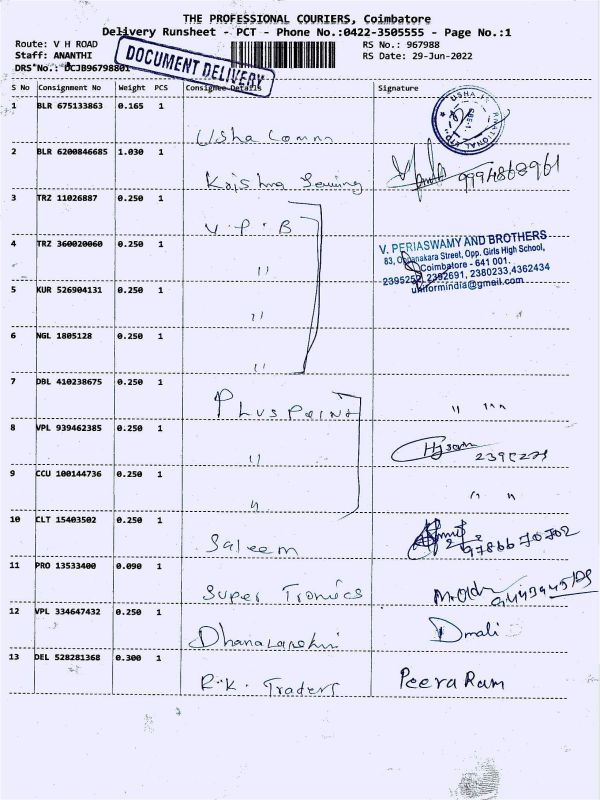 THE PROFESSIONAL COURIERS, Coimbatore
Delivery Runsheet - PCT - Phone No.:0422-3505555 - Page No.:1
Route: V H ROAD RS No.: 967988
Staff: ANANTHI RS Date: 29-Jun-2022
DRS No.: DCJB96798801
DOCUMENT DELIVERY
S No Consignment No Weight PCS Consignee Details Signature
1 BLR 675133863 0.165 1
Usha Comm
2 BLR 6200846685 1.030 1
Krishna Sewing 9994868961
3 TRZ 11026887 0.250 1
V.P.B
4 TRZ 360020060 0.250 1
"
V. PERIASWAMY AND BROTHERS
83, Oppanakara Street, Opp. Girls High School,
Coimbatore - 641 001.
2395252, 2392691, 2380233,4362434
uniformindia@gmail.com
5 KUR 526904131 0.250 1
"
6 NGL 1805128 0.250 1
"
7 DBL 410238675 0.250 1
Plus Point " "
8 VPL 939462385 0.250 1
"
9 CCU 100144736 0.250 1
" " "
10 CLT 15403502 0.250 1
Saleem 9786670702
11 PRO 13533400 0.090 1
Super Tronics
12 VPL 334647432 0.250 1
Dhanalakshmi Dmali
13 DEL 528281368 0.300 1
R.K. Traders Peera Ram